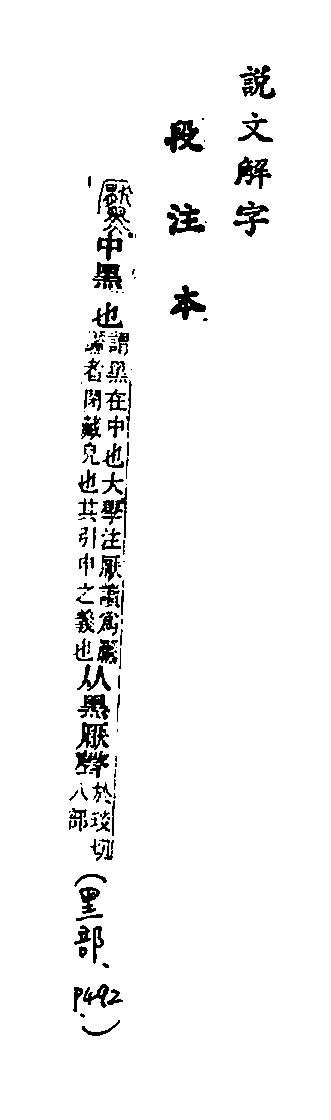 説文解字
段注本
黶中黑也
謂黑在中也大學注厭讀爲黶
黶者閉藏皃也其引申之義也
从黑厭聲
於琰切
八部
(黑部、P492.)